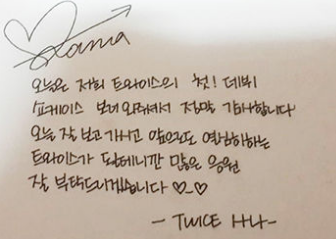 오늘은 저희 트와이스의 첫! 데뷔
쇼케이스 보러 와주셔서 정말 감사합니다
오늘 잘 보고 가시고 앞으로도 열심히하는
트와이스가 될테니깐 많은 응원
잘 부탁드리겠습니다 ♡_♡
- TWICE 사나 -